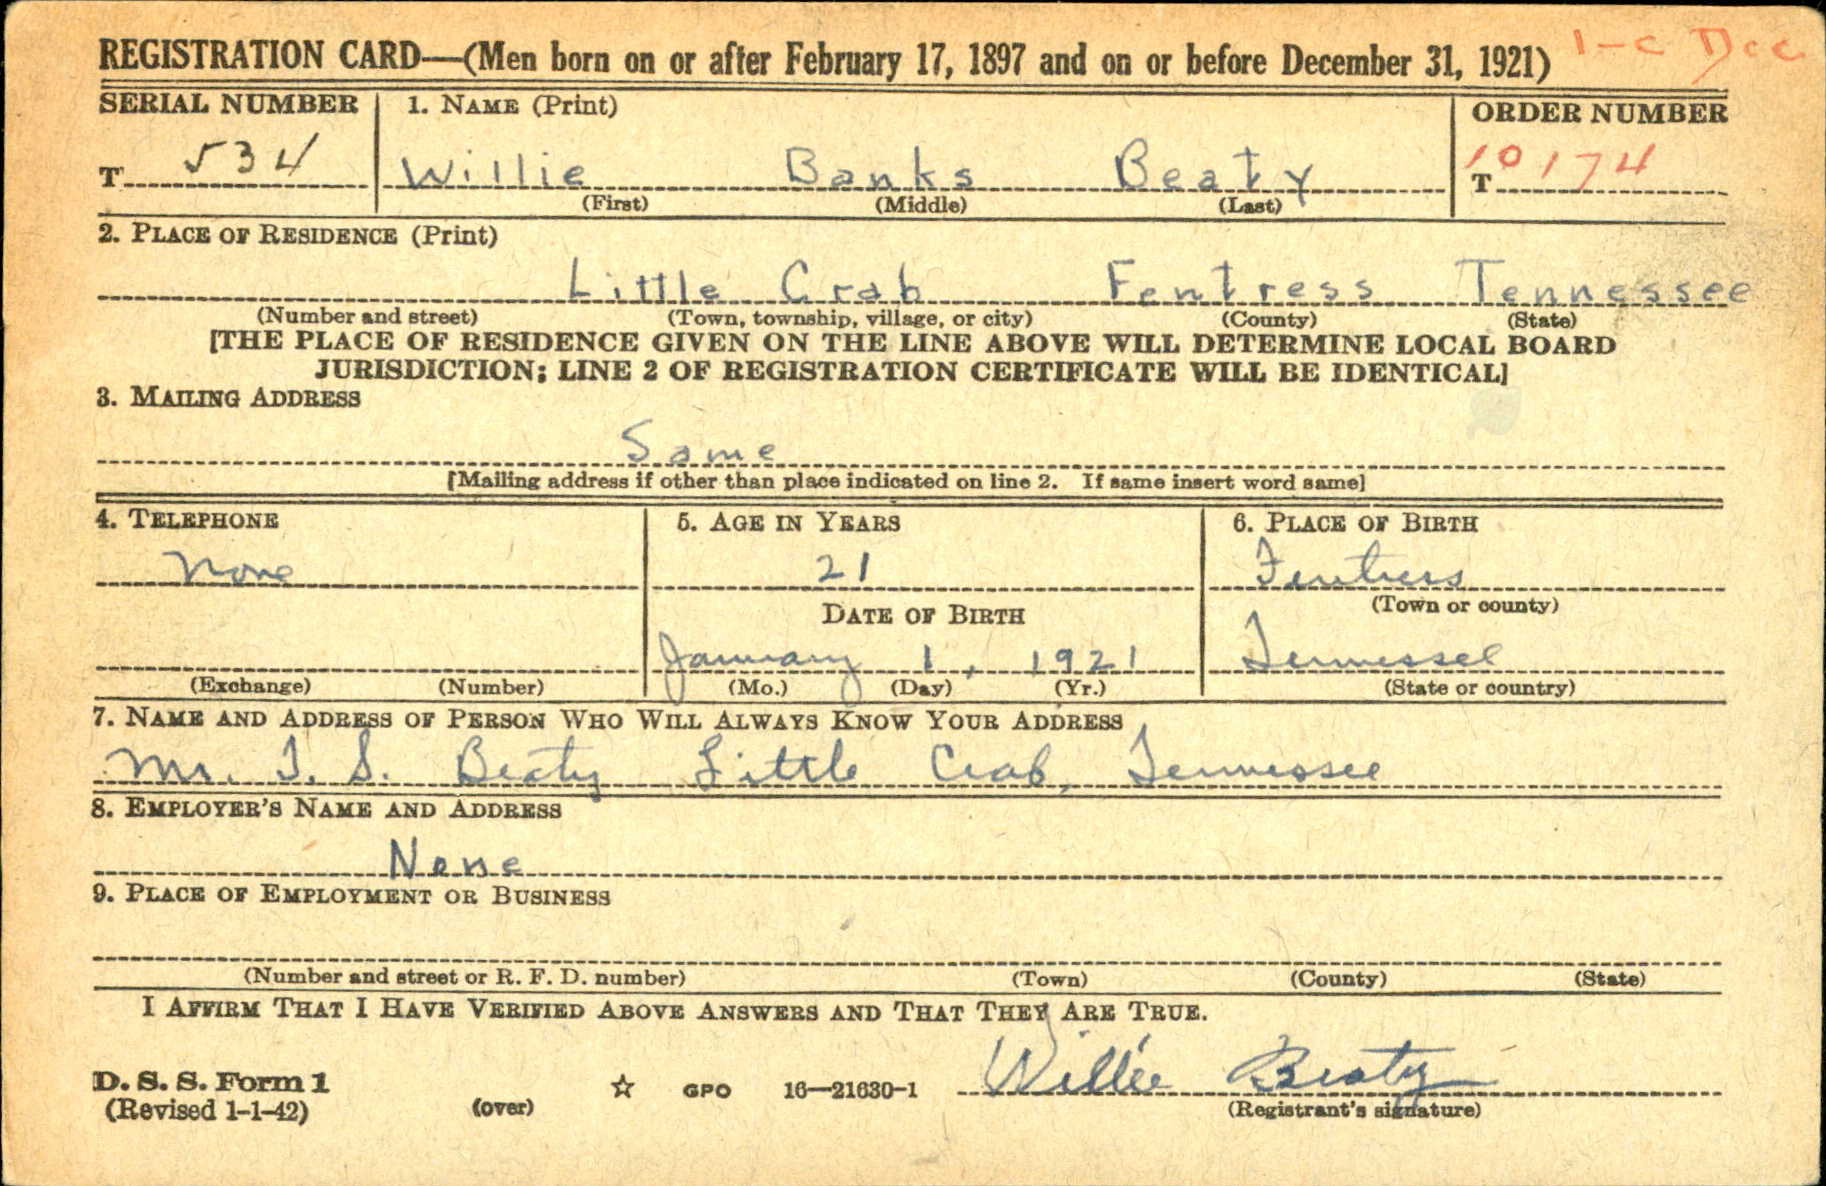 REGISTRATION CARD—(Men born on or after February 17, 1897 and on or before December 31, 1921) 1-C Dec
SERIAL NUMBER 1. NAME (Print) ORDER NUMBER
T 534 Willie Banks Beaty T 10174
(First) (Middle) (Last)
2. PLACE OF RESIDENCE (Print)
Little Crab Fentress Tennessee
(Number and street) (Town, township, village, or city) (County) (State)
[THE PLACE OF RESIDENCE GIVEN ON THE LINE ABOVE WILL DETERMINE LOCAL BOARD
JURISDICTION; LINE 2 OF REGISTRATION CERTIFICATE WILL BE IDENTICAL]
3. MAILING ADDRESS
Same
[Mailing address if other than place indicated on line 2. If same insert word same]
4. TELEPHONE 5. AGE IN YEARS 6. PLACE OF BIRTH
None 21 Fentress
DATE OF BIRTH (Town or county)
January 1, 1921 Tennessee
(Exchange) (Number) (Mo.) (Day) (Yr.) (State or country)
7. NAME AND ADDRESS OF PERSON WHO WILL ALWAYS KNOW YOUR ADDRESS
Mr. T. S. Beaty Little Crab, Tennessee
8. EMPLOYER'S NAME AND ADDRESS
None
9. PLACE OF EMPLOYMENT OR BUSINESS
(Number and street or R. F. D. number) (Town) (County) (State)
I AFFIRM THAT I HAVE VERIFIED ABOVE ANSWERS AND THAT THEY ARE TRUE.
D. S. S. Form 1 ☆ GPO 16—21630-1 Willie Beaty
(Revised 1-1-42) (over) (Registrant's signature)